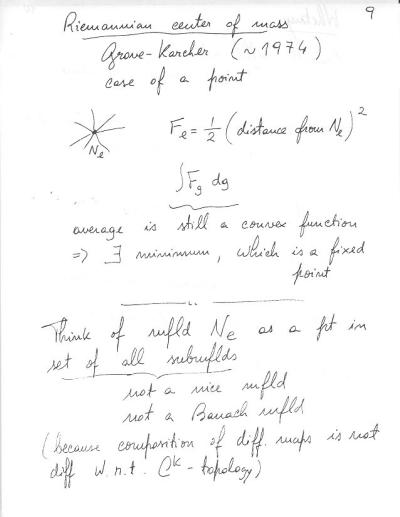 9
Riemannian center of mass
Grove-Karcher (~1974)
case of a point
N_e
F_e = 1/2 (distance from N_e)^2
∫F_g dg
average is still a convex function
=> ∃ minimum, which is a fixed
point
Think of mfld N_e as a pt in
set of all submflds
not a nice mfld
not a Banach mfld
(because composition of diff. maps is not
diff w.r.t. C^k-topology)